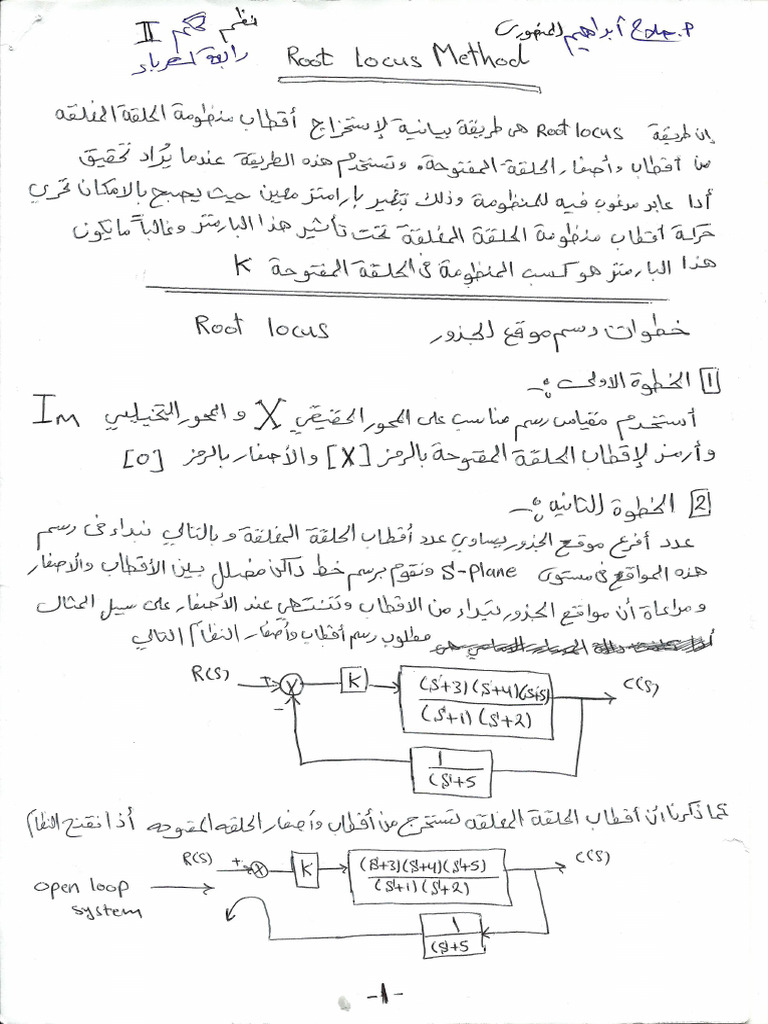 م. صلاح أبراهيم المنصوري
نظم تحكم II
رابعة كهرباء
Root locus Method
إن طريقة Root locus هي طريقة بيانية لإستخراج أقطاب منظومة الحلقة المغلقه
من أقطاب وأصفار الحلقة المفتوحة. وتستخدم هذه الطريقة عندما يُراد تحقيق
أدا عابر مرغوب فيه للمنظومة وذلك بتغير بارامتر معين حيث يصبح بالامكان تحري
حركة أقطاب منظومة الحلقة المغلقة تحت تأثير هذا البارمتر وغالباً ما يكون
هذا البارمتر هو كسب المنظومة في الحلقة المفتوحة K
خطوات رسم موقع الجذور Root locus
1 الخطوة الاولى :-
أستخدم مقياس رسم مناسب على المحور الحقيقي X و المحور التخيلي Im
وأرمز لإقطاب الحلقة المفتوحة بالرمز [X] والأصفار بالرمز [O]
2 الخطوة الثانيه :-
عدد أفرع موقع الجذور يساوي عدد أقطاب الحلقة المغلقة وبالتالي نبداء في رسم
هذه المواقع في مستوى S-Plane ونقوم برسم خط داكن مضلل بين الأقطاب والأصفار
ومراعاة أن مواقع الجذور تبداء من الاقطاب وتنتهي عند الأصفار على سبيل المثال
مطلوب رسم أقطاب وأصفار النظام التالي
R(S) + - K (S+3)(S+4)(S+5) C(S)
(S+1)(S+2)
1
(S+5
كما ذكرنا أن أقطاب الحلقة المغلقه تستخرج من أقطاب وأصفار الحلقه المفتوحه أذا نفتح النظام
R(S) + K (S+3)(S+4)(S+5) C(S)
(S+1)(S+2)
open loop
system
1
(S+5
-1-